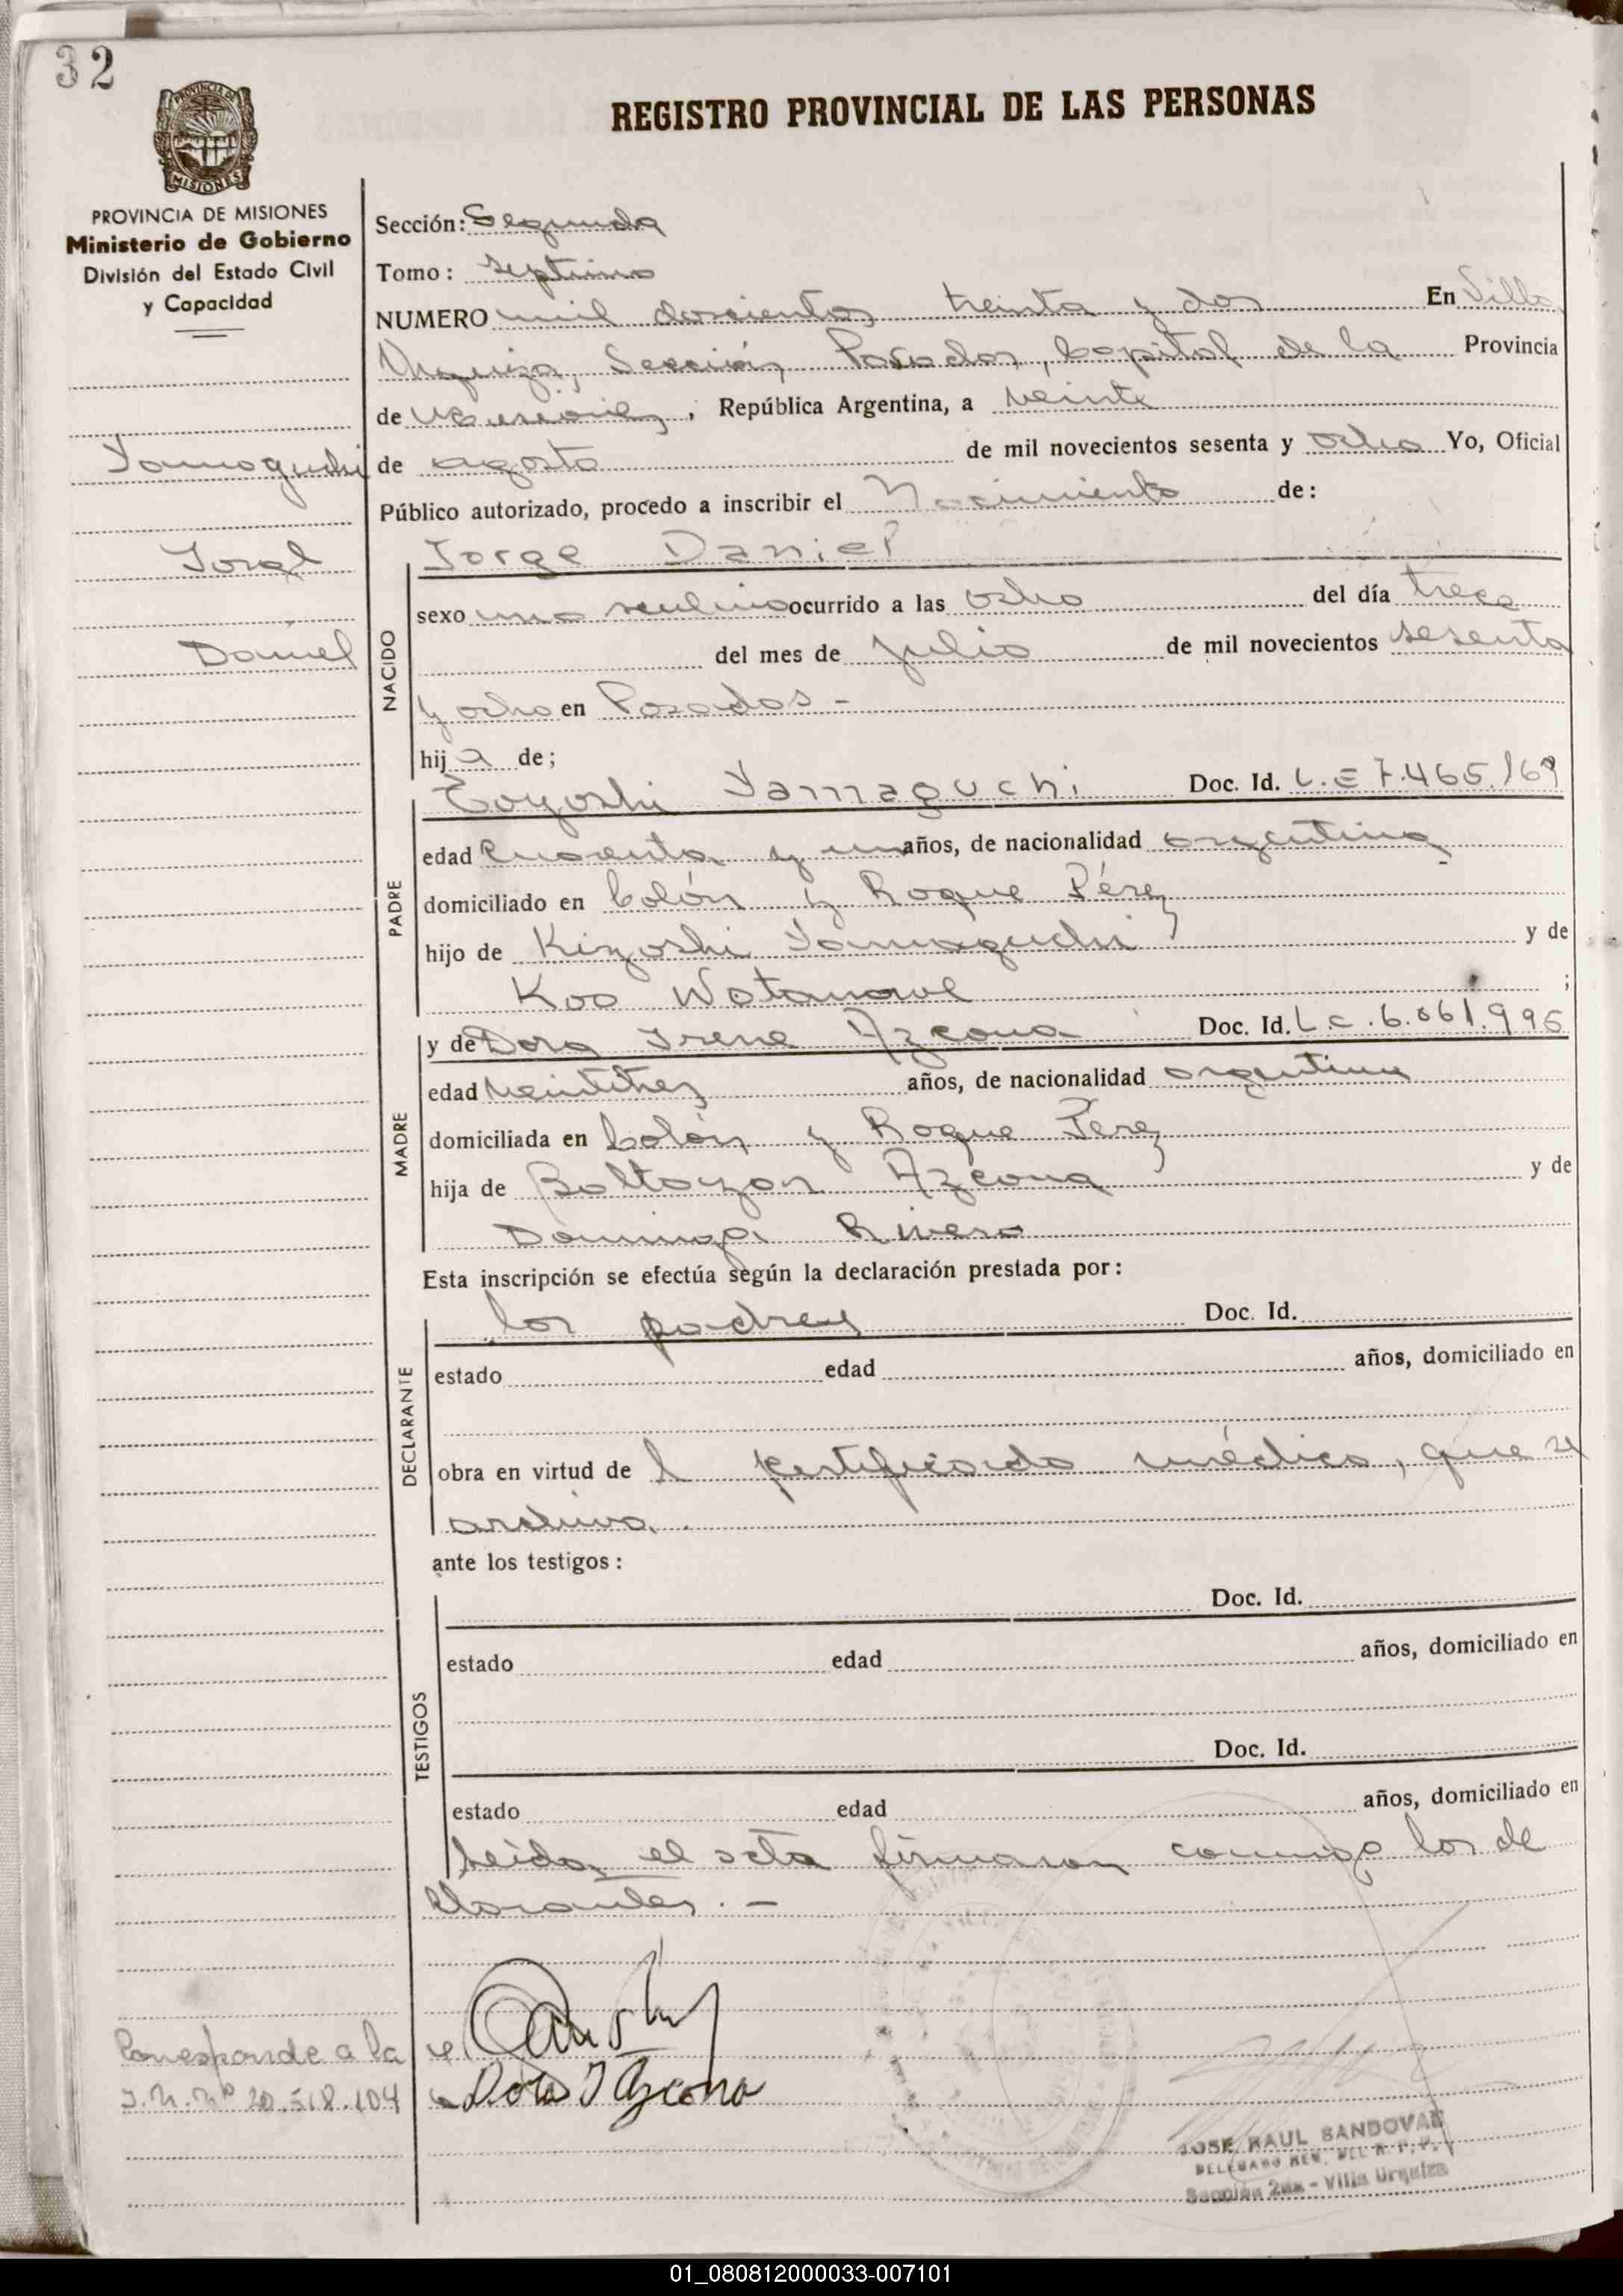 32
REGISTRO PROVINCIAL DE LAS PERSONAS
PROVINCIA DE MISIONES
Ministerio de Gobierno
División del Estado Civil
y Capacidad
Yamaguchi
Jorge
Daniel
Sección: Segunda
Tomo: septimo
NUMERO mil doscientos treinta y dos En Villa
Urquiza, Sección Posadas, Capital de la Provincia
de Misiones, República Argentina, a veinte
de agosto de mil novecientos sesenta y ocho Yo, Oficial
Público autorizado, procedo a inscribir el Nacimiento de:
NACIDO
Jorge Daniel
sexo masculino ocurrido a las ocho del día trece
del mes de julio de mil novecientos sesenta
y ocho en Posadas -
hij o de;
PADRE
Toyoshi Yamaguchi Doc. Id. L.E 7.465.169
edad cuarenta y un años, de nacionalidad argentina
domiciliado en Colón y Roque Pérez
hijo de Kiyoshi Yamaguchi y de
Koo Watanave ;
MADRE
y de Dora Irene Azcona Doc. Id. L.C. 6.061.995
edad veintitres años, de nacionalidad argentina
domiciliada en Colón y Roque Perez
hija de Baltazar Azcona y de
Dominga Rivero
Esta inscripción se efectúa según la declaración prestada por:
DECLARANTE
los padres Doc. Id.
estado edad años, domiciliado en
obra en virtud de l certificado médico, que se
archiva.
ante los testigos:
TESTIGOS
Doc. Id.
estado edad años, domiciliado en
Doc. Id.
estado edad años, domiciliado en
Leida el acta firmaron conmigo los de
clarantes. -
Corresponde a la
I.M.Nº 20.518.104
Dora I Azcona
JOSE RAUL SANDOVAL
DELEGADO
Sección 2da - Villa Urquiza
01_080812000033-007101